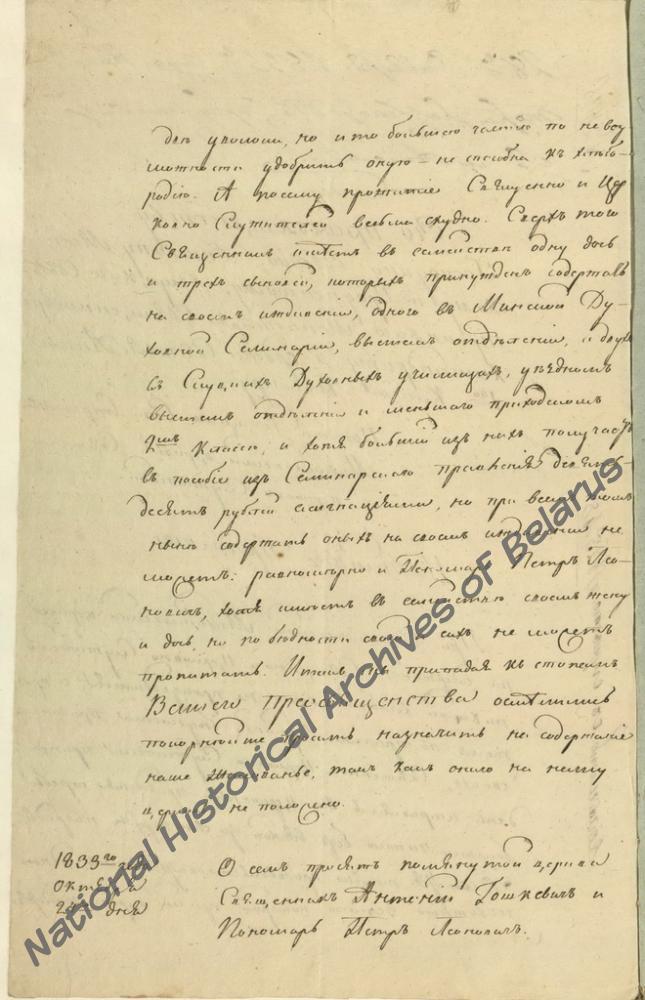 дки уволоки, но и то большею частію по невоз-
можности удобрить оную – не способна къ хлѣбо-
родію. А посему прожитіе Священно и Цер
ковно Служителей весьма скудно. Сверхъ того
Священникъ имѣетъ въ семействѣ одну дочь
и трехъ сыновей, которыхъ принужденъ содержать
на своемъ иждивеніи, одного въ Минской Ду-
ховной Семинаріи, высшемъ отдѣленіи, а двухъ
въ Слуцкихъ Духовныхъ училищахъ, уѣздномъ
высшемъ отдѣленіи и меньшаго приходскомъ
2мъ классѣ, и хотя большій изъ нихъ получаетъ
въ пособіе изъ Семинарскаго правленія девять-
десятъ рублей ассигнаціями, но при всемъ томъ
нынѣ содержать оныхъ на своемъ иждивеніи не
можетъ: равномѣрно и Пономарь Петръ Лео-
новичъ, хотя имѣетъ въ семействѣ своемъ жену
и дочь, но по бѣдности своей и сихъ не можетъ
пропитать. Итакъ мы припадая къ стопамъ
Вашего Преосвященства осмѣлились
покорнѣйше просить назначить на содержаніе
наше жалованье, такъ какъ оного на нашу
церковь не положено.
1833го года
Октября
24 дня
О семъ просятъ помянутой церкви
Священникъ Антоній Гошкевичъ и
Пономарь Петръ Леоновичъ.
National Historical Archives of Belarus